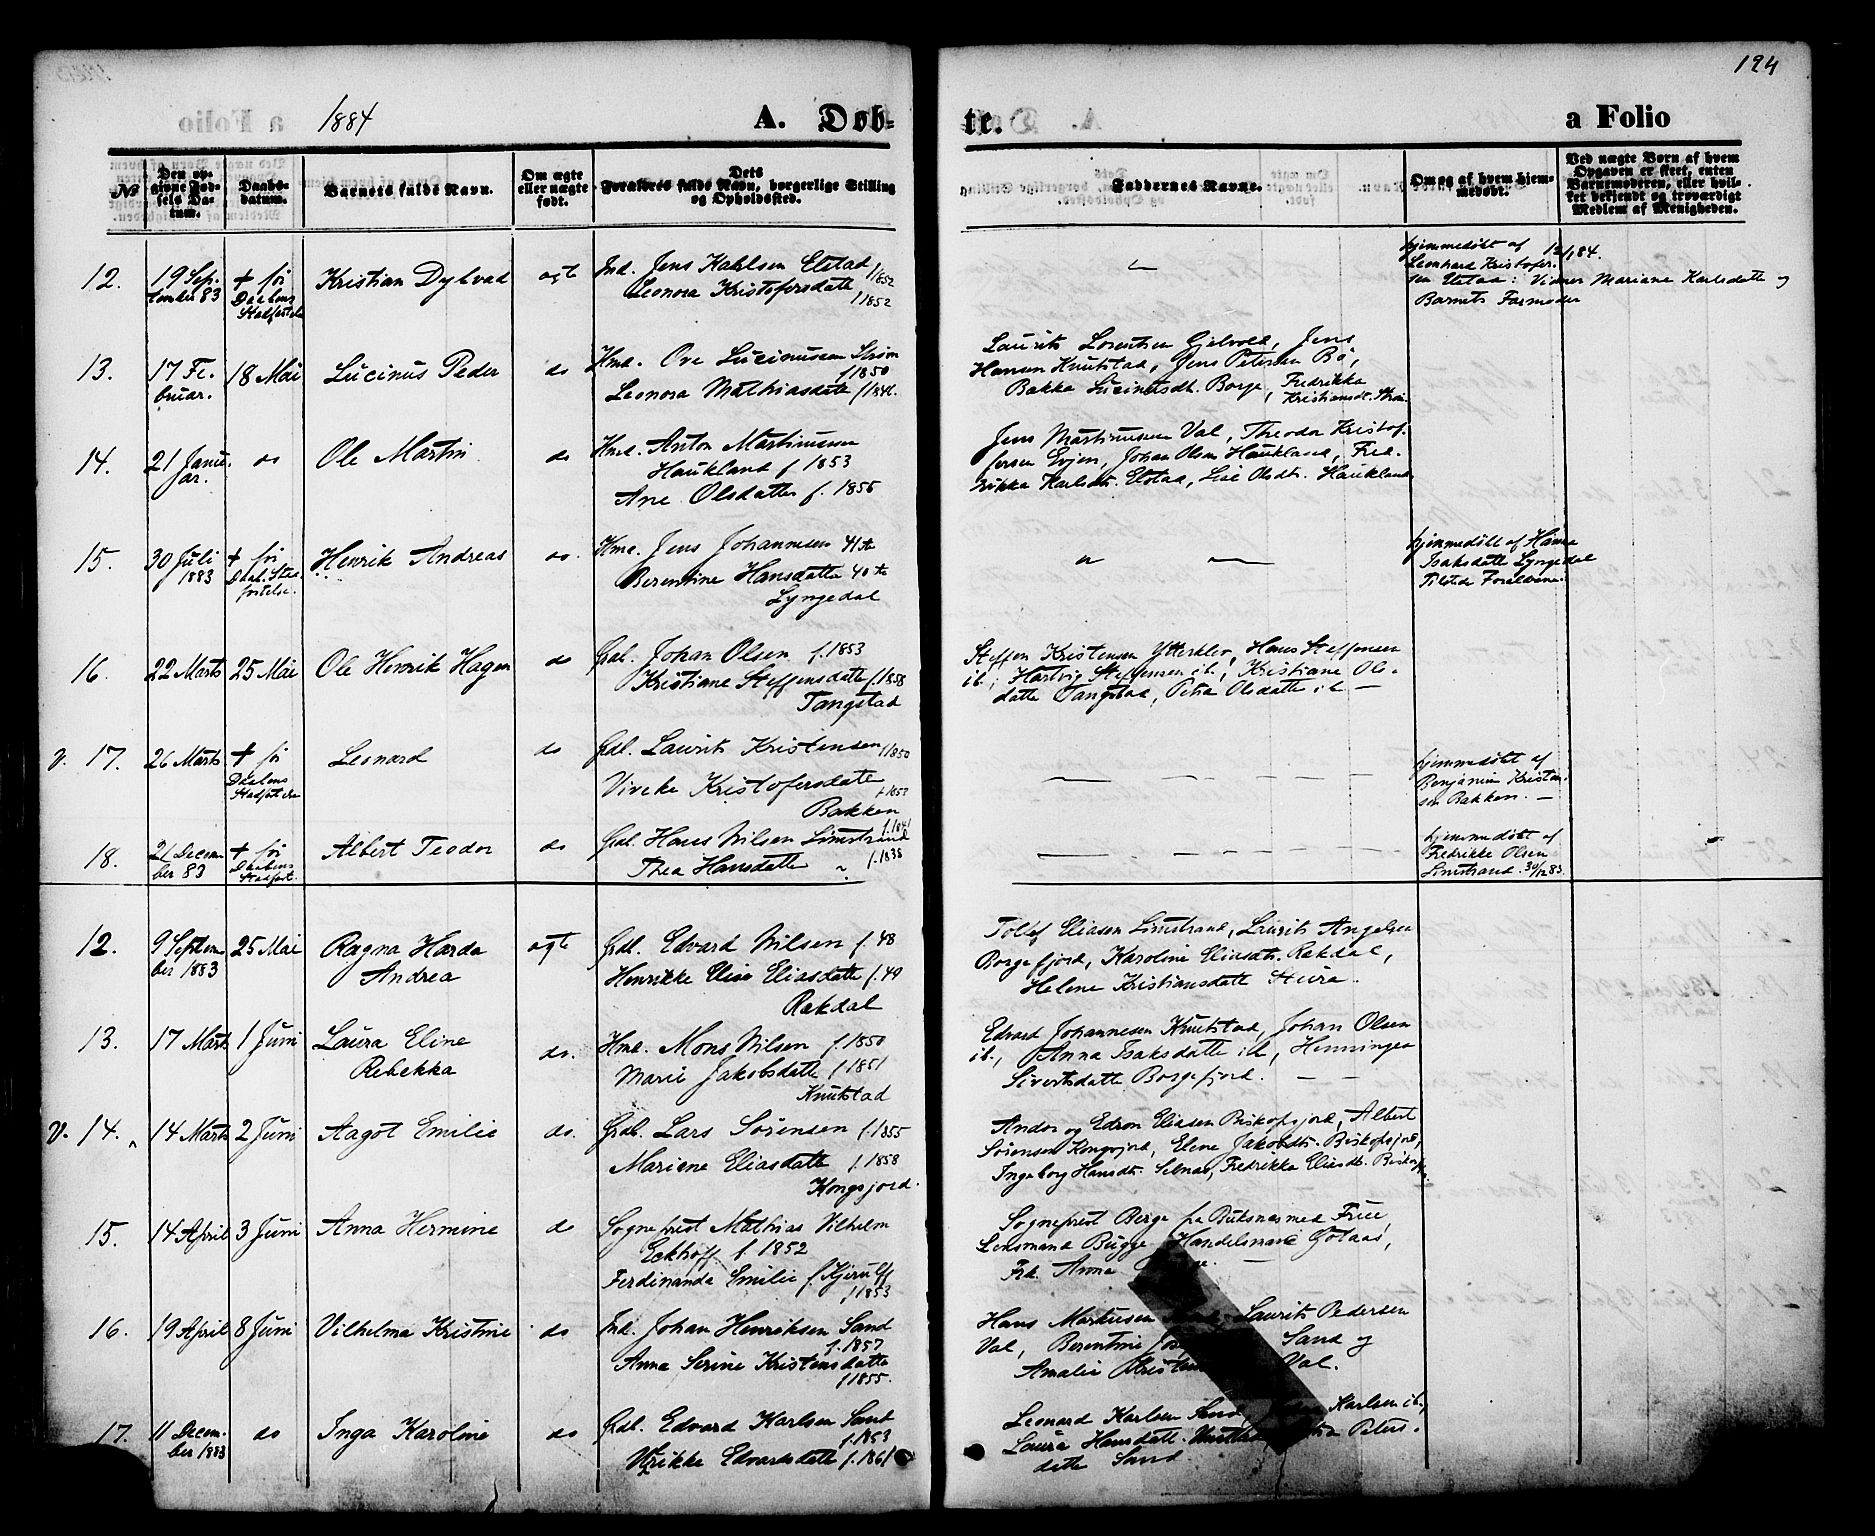 124
1884
A. Døb-
te.
a Folio
№
Den op-
givne Fød-
sels Da-
tum.
Daabs-
datum.
Barnets fulde Navn.
Om ægte
eller uægte
født.
Dets
Forældres fulde Navn, borgerlige Stilling
og Opholdssted.
Faddernes Navne.
Om og af hvem hjem-
medøbt.
Ved uægte Børn af hvem
Opgaven er skeet, enten
Barnemoderen, eller hvil-
ket bekjendt og troværdigt
Medlem af Menigheden.
12.
19 Sep-
tember 83
+ før
Daabens
Stadfæstelse
Kristian Dybvad
ægte
Ind. Jens Karlsen Elstad f 1852
Leonora Kristofersdatte f 1852
hjemmedøbt af 13/1 84.
Leonhard Kristofer-
sen : Vidner Mariane Karlsdatte og
Barnets Farmoder
13.
17 Fe-
bruar.
18 Mai
Lucinus Peder
do
Hmd. Ove Lucinussen Strøm
f 1850
Leonora Mathiasdatte
Laurits Lorentsen Gjelvold, Jens
Hansen Knutstad, Jens Petersen Bø,
Bakka Lucinusdt. Borge, Fredrikka
Kristiansdt. Strøm
14.
21 Janu-
ar.
do
Ole Martin
do
Hmd. Anton Martinussen
Haukland f 1853
Ane Olsdatter f. 1855
Jens Martinussen Val, Theodor Kristof-
fersen Evjen, Johan Olsen Haukland, Fred-
rikka Karlsdt. Elstad, Lise Olsdt. Haukland
15.
30 Juli
1883
+ før
Daab. Stad-
fæstelse.
Henrik Andreas
do.
Hmd. Jens Johannesen 41 år
Berentine Hansdatte 40 år
Lyngedal
hjemmedøbt af Hanna
Isaksdatte Lyngedal
Tilstede Forældrene.
16.
22 Marts
25 Mai
Ole Henrik Hagen
do
Gbd. Johan Olsen f. 1853
Kristiane Steffensdatte f 1858
Tangstad
Steffen Kristensen Ytterklev, Hans Steffensen
ib., Hartvig Steffensen ib., Kristiane Ols-
datte Tangstad, Petra Olsdatte ib —
V. 17.
26 Marts
+ før
Daabens
Stadfæstelse
Leonard
do
Gbd. Laurits Kristensen f 1850
Viveke Kristofersdatte
f 1852
Bakken
hjemmedøbt af
Benjamin Kristen-
sen Bakken. —
18.
21 Decem-
ber 83
+ før
Daabens
Stadfæst.
Albert Teodor
do
Gbd. Hans Nilsen Limstrand
f. 1841
Thea Hansdatte f. 1838
hjemmedøbt af
Fredrikke Olsen
Limstrand 30/12 83
12.
9 Septem-
ber 1883
25 Mai
Ragna Harda
Andrea
ægte
Gbd. Edvard Nilsen f. 48
Henrikke Elise Eliasdatte f. 49
Rakdal
Tollef Eliasen Limstrand, Laurits Angelsen
Borgefjord, Karoline Eliasdt. Rakdal,
Helene Kristiansdatte Stura.
13.
17 Marts
1 Juni
Laura Eline
Rebekka
do.
Hmd. Mons Nilsen f. 1850
Marie Jakobsdatte f. 1851
Knutstad
Edvard Johannesen Knutstad, Johan Olsen
ib., Anna Isaksdatte ib, Henningea
Sivertsdatte Borgefjord. — —
V. 14.
14 Marts
2 Juni
Aagot Emilie
do.
Gbd. Lars Sørensen f. 1855
Mariene Eliasdatte f. 1858
Kongsjord
Andor og Edvon Eliasen Biskopsjord, Albert
Sørensen Kongsjord, Elene Jakobdt. Biskopsjord,
Ingeborg Hansdt. Selnæs, Fredrikka Eliasdt. Biskopsj.
15.
14 April
3 Juni
Anna Hermine
do
Sogneprest Mathias Vilhelm
Eckhoff f. 1852
Ferdinanda Emilie f. Kjerulff
f 1853
Sogneprest Berge fra Buksnæs med Frue,
Lensmand Bugge, Handelsmand Gotaas,
Frk. Anna
16.
19 April
8 Juni
Vilhelma Kristine
do
Ind. Johan Henriksen Sand
f. 1857
Anna Serine Kristensdatte
f 1855.
Hans Mortensen Laurits Pedersen
Val, Berentine Sand og
Amalie Val.
17.
11 Decem-
ber 1883
do
Inga Karoline
do
Gbd. Edvard Karlsen Sand
f. 1853
Ulrikke Edvardsdatte f. 1861
Leonard Karlsen Sand, Karlsen ib.,
Laura Hansdatte Peters-
datte Sand.